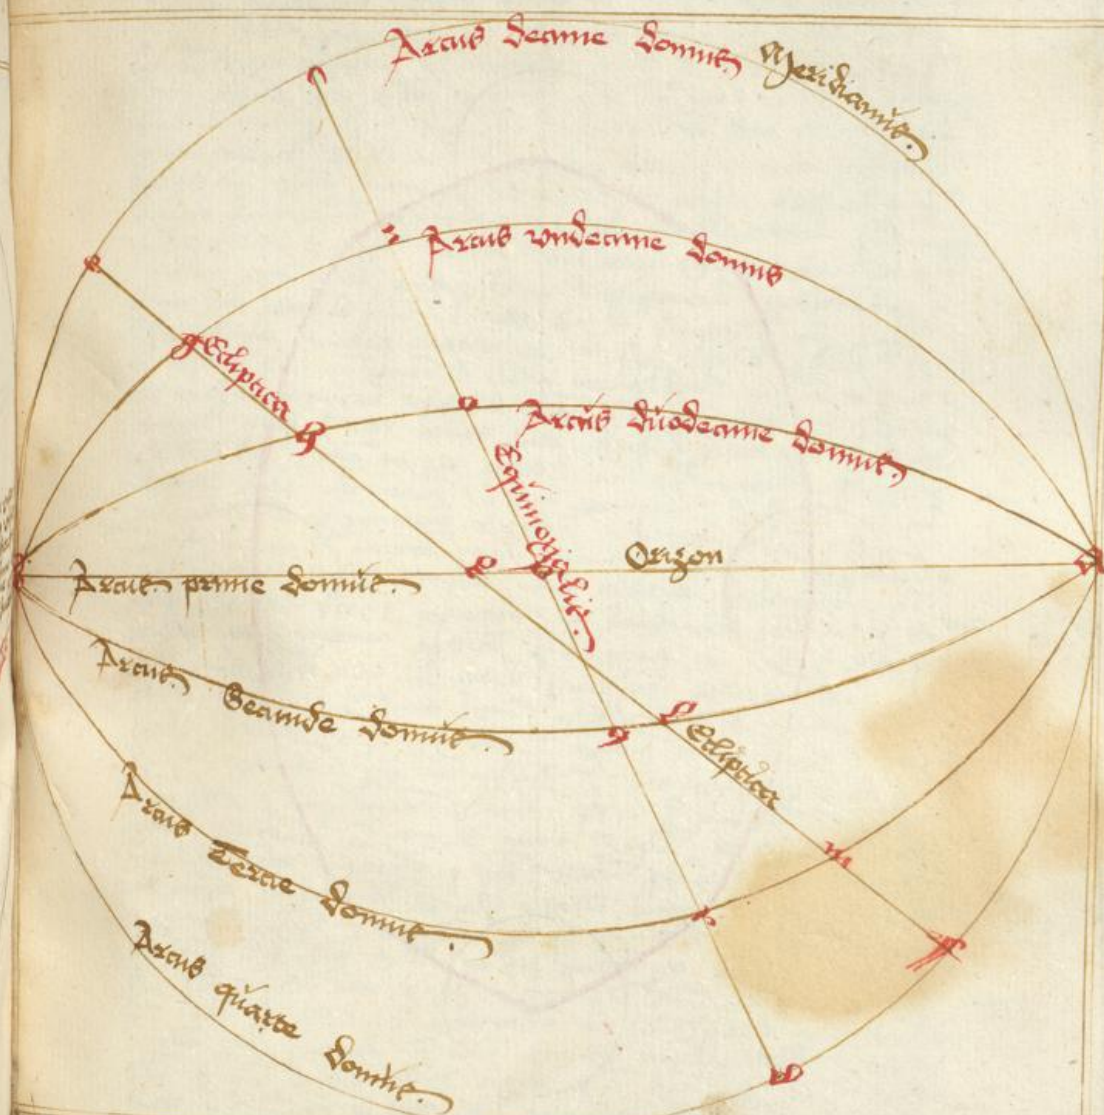 Arcus decime domus.
Meridianus.
Arcus vndecime domus
Ecliptica
g
h
e
o
Arcus duodecime domus.
Equinoxialis.
Orizon
k
Arcus prime domus.
Arcus Secunde domus.
l
Ecliptica
Arcus Tercie domus.
m
f
Arcus quarte domus.